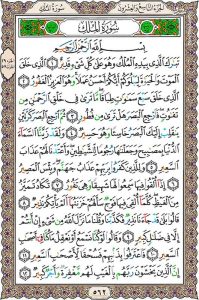 الجزء التاسع والعشرون سورة الملك
سُورَةُ المُلْكِ
بِسْمِ اللَّهِ الرَّحْمَٰنِ الرَّحِيمِ
تَبَٰرَكَ الَّذِي بِيَدِهِ الْمُلْكُ وَهُوَ عَلَىٰ كُلِّ شَيْءٍ قَدِيرٌ ١ الَّذِي خَلَقَ
الْمَوْتَ وَالْحَيَوٰةَ لِيَبْلُوَكُمْ أَيُّكُمْ أَحْسَنُ عَمَلًا وَهُوَ الْعَزِيزُ الْغَفُورُ ٢
الَّذِي خَلَقَ سَبْعَ سَمَٰوَٰتٍ طِبَاقًا مَّا تَرَىٰ فِي خَلْقِ الرَّحْمَٰنِ مِن
تَفَٰوُتٍ فَارْجِعِ الْبَصَرَ هَلْ تَرَىٰ مِن فُطُورٍ ٣ ثُمَّ ارْجِعِ الْبَصَرَ كَرَّتَيْنِ
يَنقَلِبْ إِلَيْكَ الْبَصَرُ خَاسِئًا وَهُوَ حَسِيرٌ ٤ وَلَقَدْ زَيَّنَّا السَّمَاءَ
الدُّنْيَا بِمَصَٰبِيحَ وَجَعَلْنَٰهَا رُجُومًا لِّلشَّيَٰطِينِ وَأَعْتَدْنَا لَهُمْ عَذَابَ
السَّعِيرِ ٥ وَلِلَّذِينَ كَفَرُوا بِرَبِّهِمْ عَذَابُ جَهَنَّمَ وَبِئْسَ الْمَصِيرُ
٦ إِذَا أُلْقُوا فِيهَا سَمِعُوا لَهَا شَهِيقًا وَهِيَ تَفُورُ ٧ تَكَادُ تَمَيَّزُ
مِنَ الْغَيْظِ كُلَّمَا أُلْقِيَ فِيهَا فَوْجٌ سَأَلَهُمْ خَزَنَتُهَا أَلَمْ يَأْتِكُمْ نَذِيرٌ ٨
قَالُوا بَلَىٰ قَدْ جَاءَنَا نَذِيرٌ فَكَذَّبْنَا وَقُلْنَا مَا نَزَّلَ اللَّهُ مِن شَيْءٍ إِنْ أَنتُمْ
إِلَّا فِي ضَلَٰلٍ كَبِيرٍ ٩ وَقَالُوا لَوْ كُنَّا نَسْمَعُ أَوْ نَعْقِلُ مَا كُنَّا فِي أَصْحَٰبِ
السَّعِيرِ ١٠ فَاعْتَرَفُوا بِذَنبِهِمْ فَسُحْقًا لِّأَصْحَٰبِ السَّعِيرِ ١١
إِنَّ الَّذِينَ يَخْشَوْنَ رَبَّهُم بِالْغَيْبِ لَهُم مَّغْفِرَةٌ وَأَجْرٌ كَبِيرٌ ١٢
٥٦٢